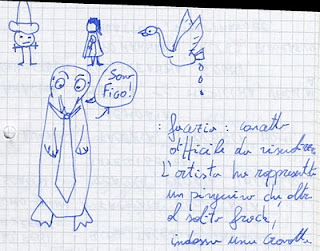 Sono
FIGO!
: facezia : concetto
difficile da
L'artista ha rappresentato
un pinguino che oltre
al solito frac,
indossa una cravatta